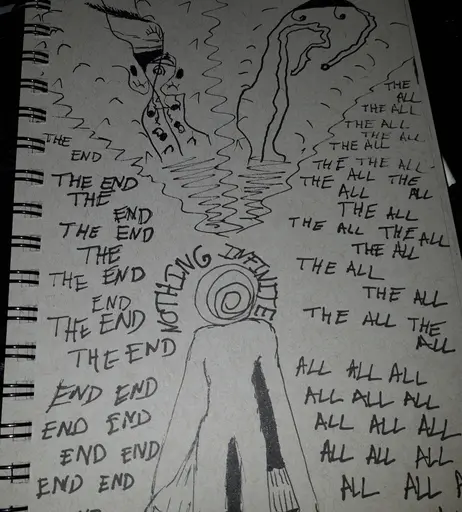 THE
END
THE END
THE
END
THE END
THE
THE END
END
THE END
THE END
END END
END END
END END
END END
NOTHING INFINITE
THE
ALL
THE ALL
THE ALL
THE ALL
THE ALL
THE THE ALL
THE ALL THE
ALL ALL
THE ALL
THE ALL THE ALL
THE ALL
THE ALL
THE ALL
THE ALL THE
ALL
ALL ALL ALL
ALL ALL ALL
ALL ALL ALL
ALL ALL ALL
ALL ALL